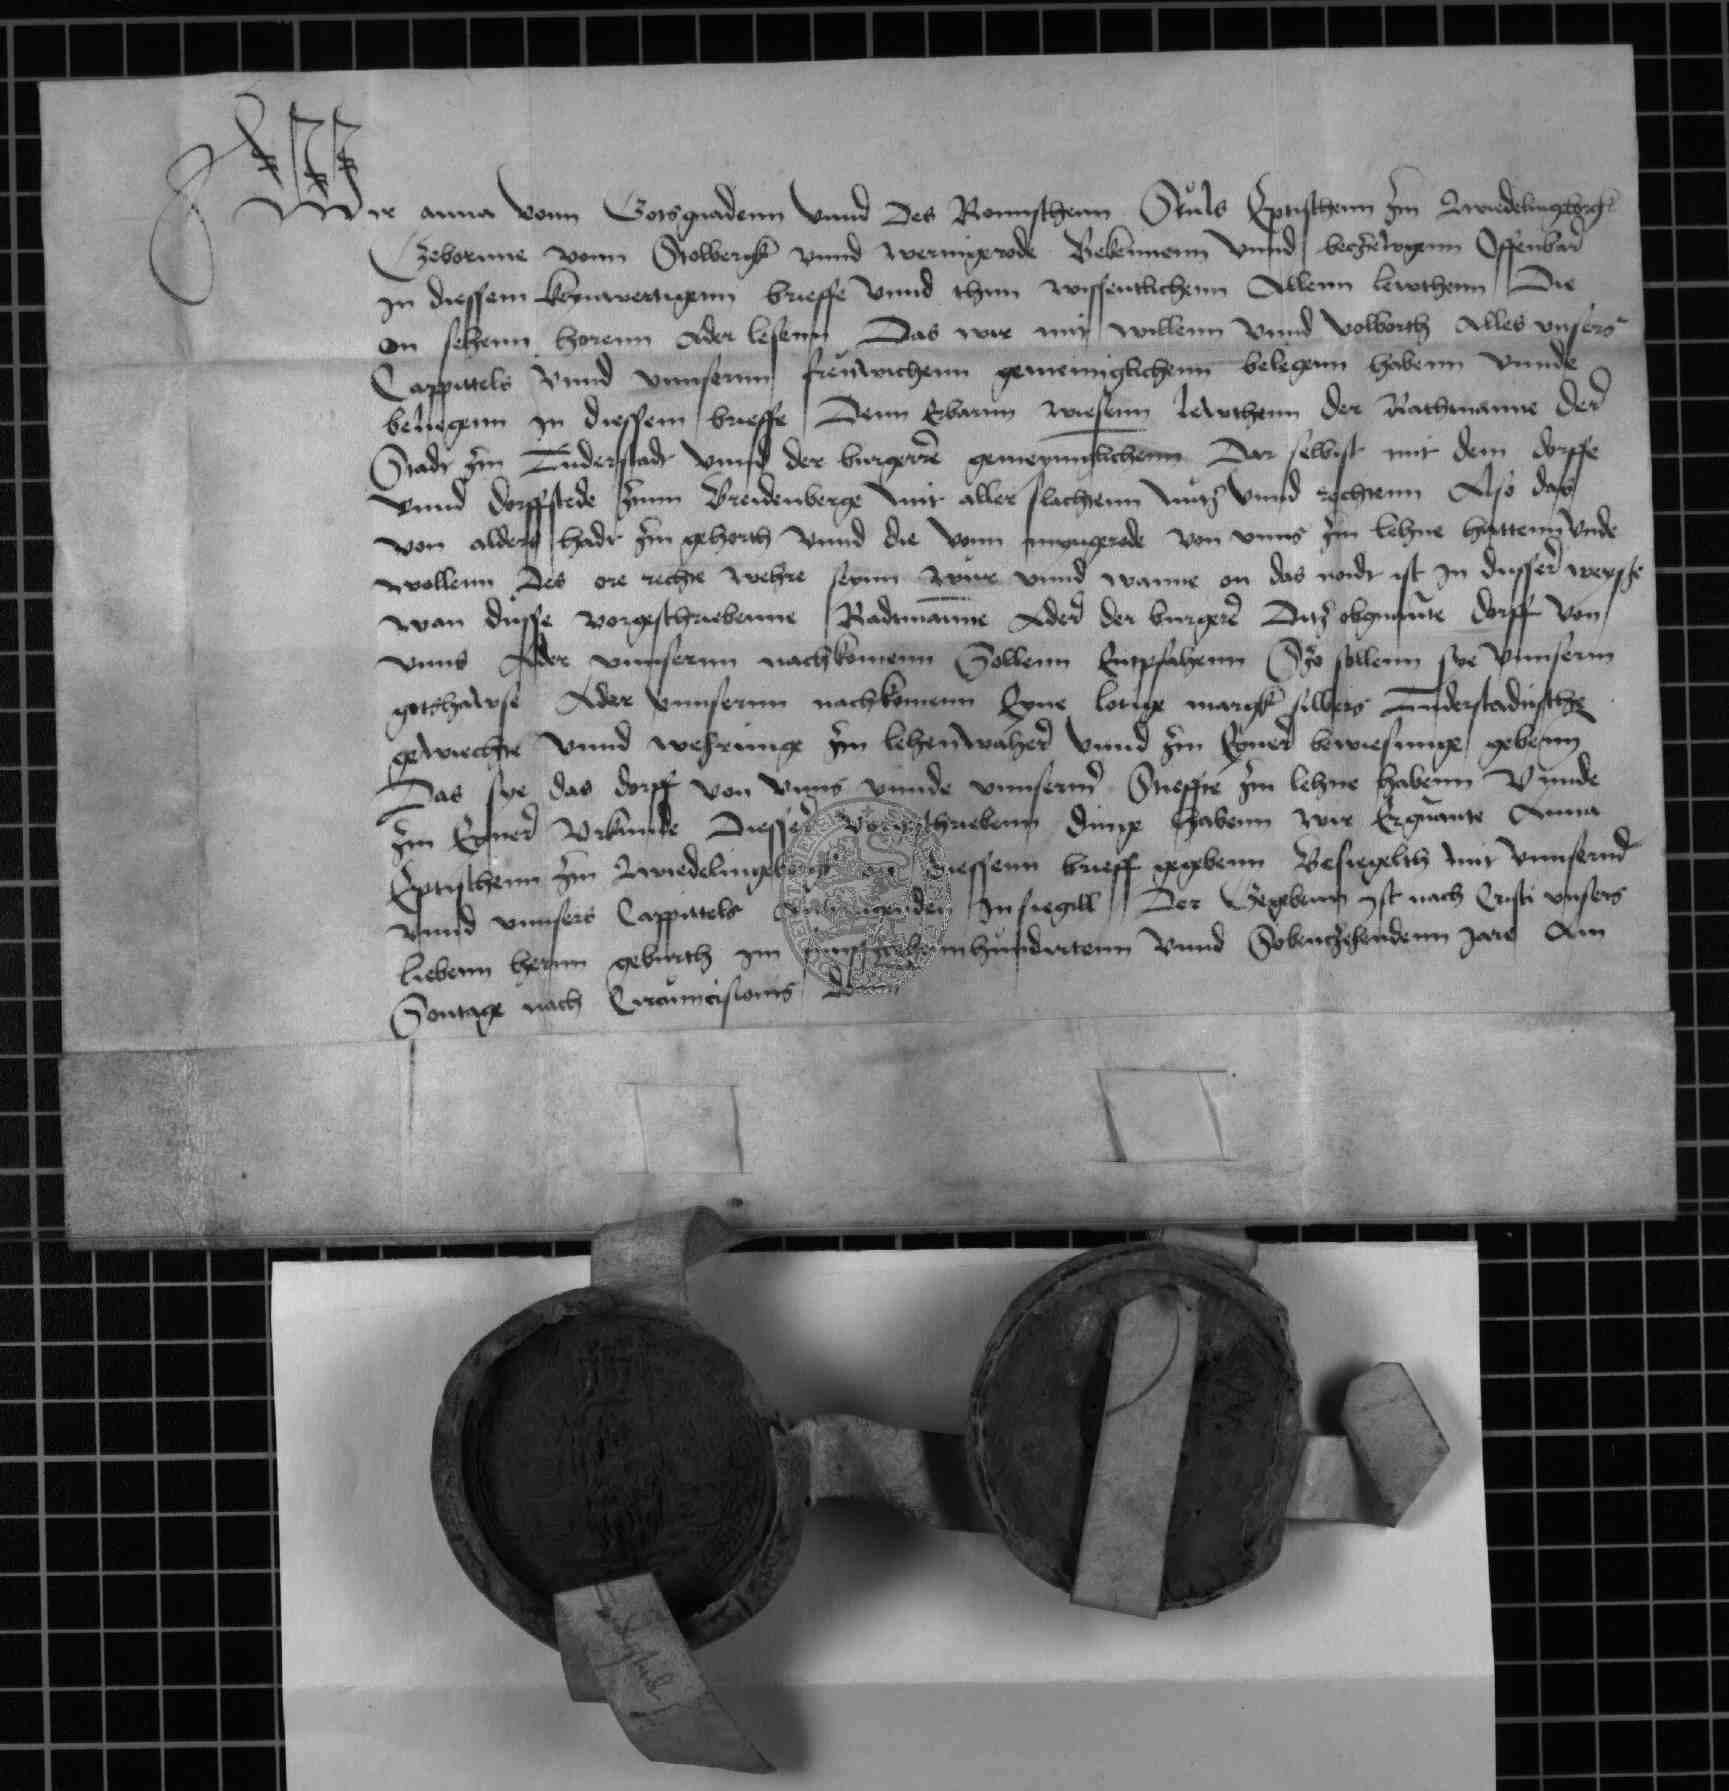 Wir anna vonn Gotsgnadenn vnnd des Romischenn Stuls Eptischenn zcu Quedelingborgk
Gebornne vonn Stolbergk vnnd werningerode Bekennenn vnnd beczewgenn Offenbar
In diessem keginwertigenn brieffe vnnd thun wissentlichenn Allenn lewthenn Die
on sehenn horenn Ader lesenn Das wir mit willenn vnnd volborth Alles vnsers
Cappittels vnnd vnnsernn frewichenn gemeiniglichenn belegenn habenn vnnde
beliegenn in diessem brieffe Denn Erbarnn wiesenn lewthenn der Rathmanne der
Stadt zcu Duderstadt vnnd der burgerre gemeyniglichenn Dar selbist mit dem dorffe
vnnd dorffstede zcum Breidenberge mit aller slachtenn nutz vnnd rechtenn Also das
von alders hadt zcu gehorth vnnd die vonn mingerode von vnns zcu lehne hattenn vnde
wollenn des ore rechte wehre seynn wur vnnd wanne on das nodt ist in dusser weysze
wan dusse vorgeschriebenne Radtmanne Ader der burgere Ditz obgnante dorff von
vnns Ader vnnsernn nachkomenn Sollenn Entpfahenn Szo sollenn sye vnnserm
gotshawse Ader vnnsernn nachkomenn Eyne lotige margk silbers Duderstadische
gewiechte vnnd wehrunge zcu lehenwaher vnnd zcu Eyner bewiesunge gebenn
Das sye das dorff von vnns vnnde vnnserm Stieffte zcu lehne habenn Vnnde
zcu Eyner Vrkunde diesser vorgeschriebenn dinge Habenn wir Ergnante Anna
Eptischenn zcu Quedelingeborgk diessenn brieff gegebenn Besiegelth mit vnnserm
vnnd vnnsers Cappittels anhangenden Insiegill Der Gegebenn ist nach Cristi vnsers
liebenn hernn geburth im funffzcehennhundertenn vnnd Sobenczehendenn Jare Am
Sontage nach Circumcisionis domini